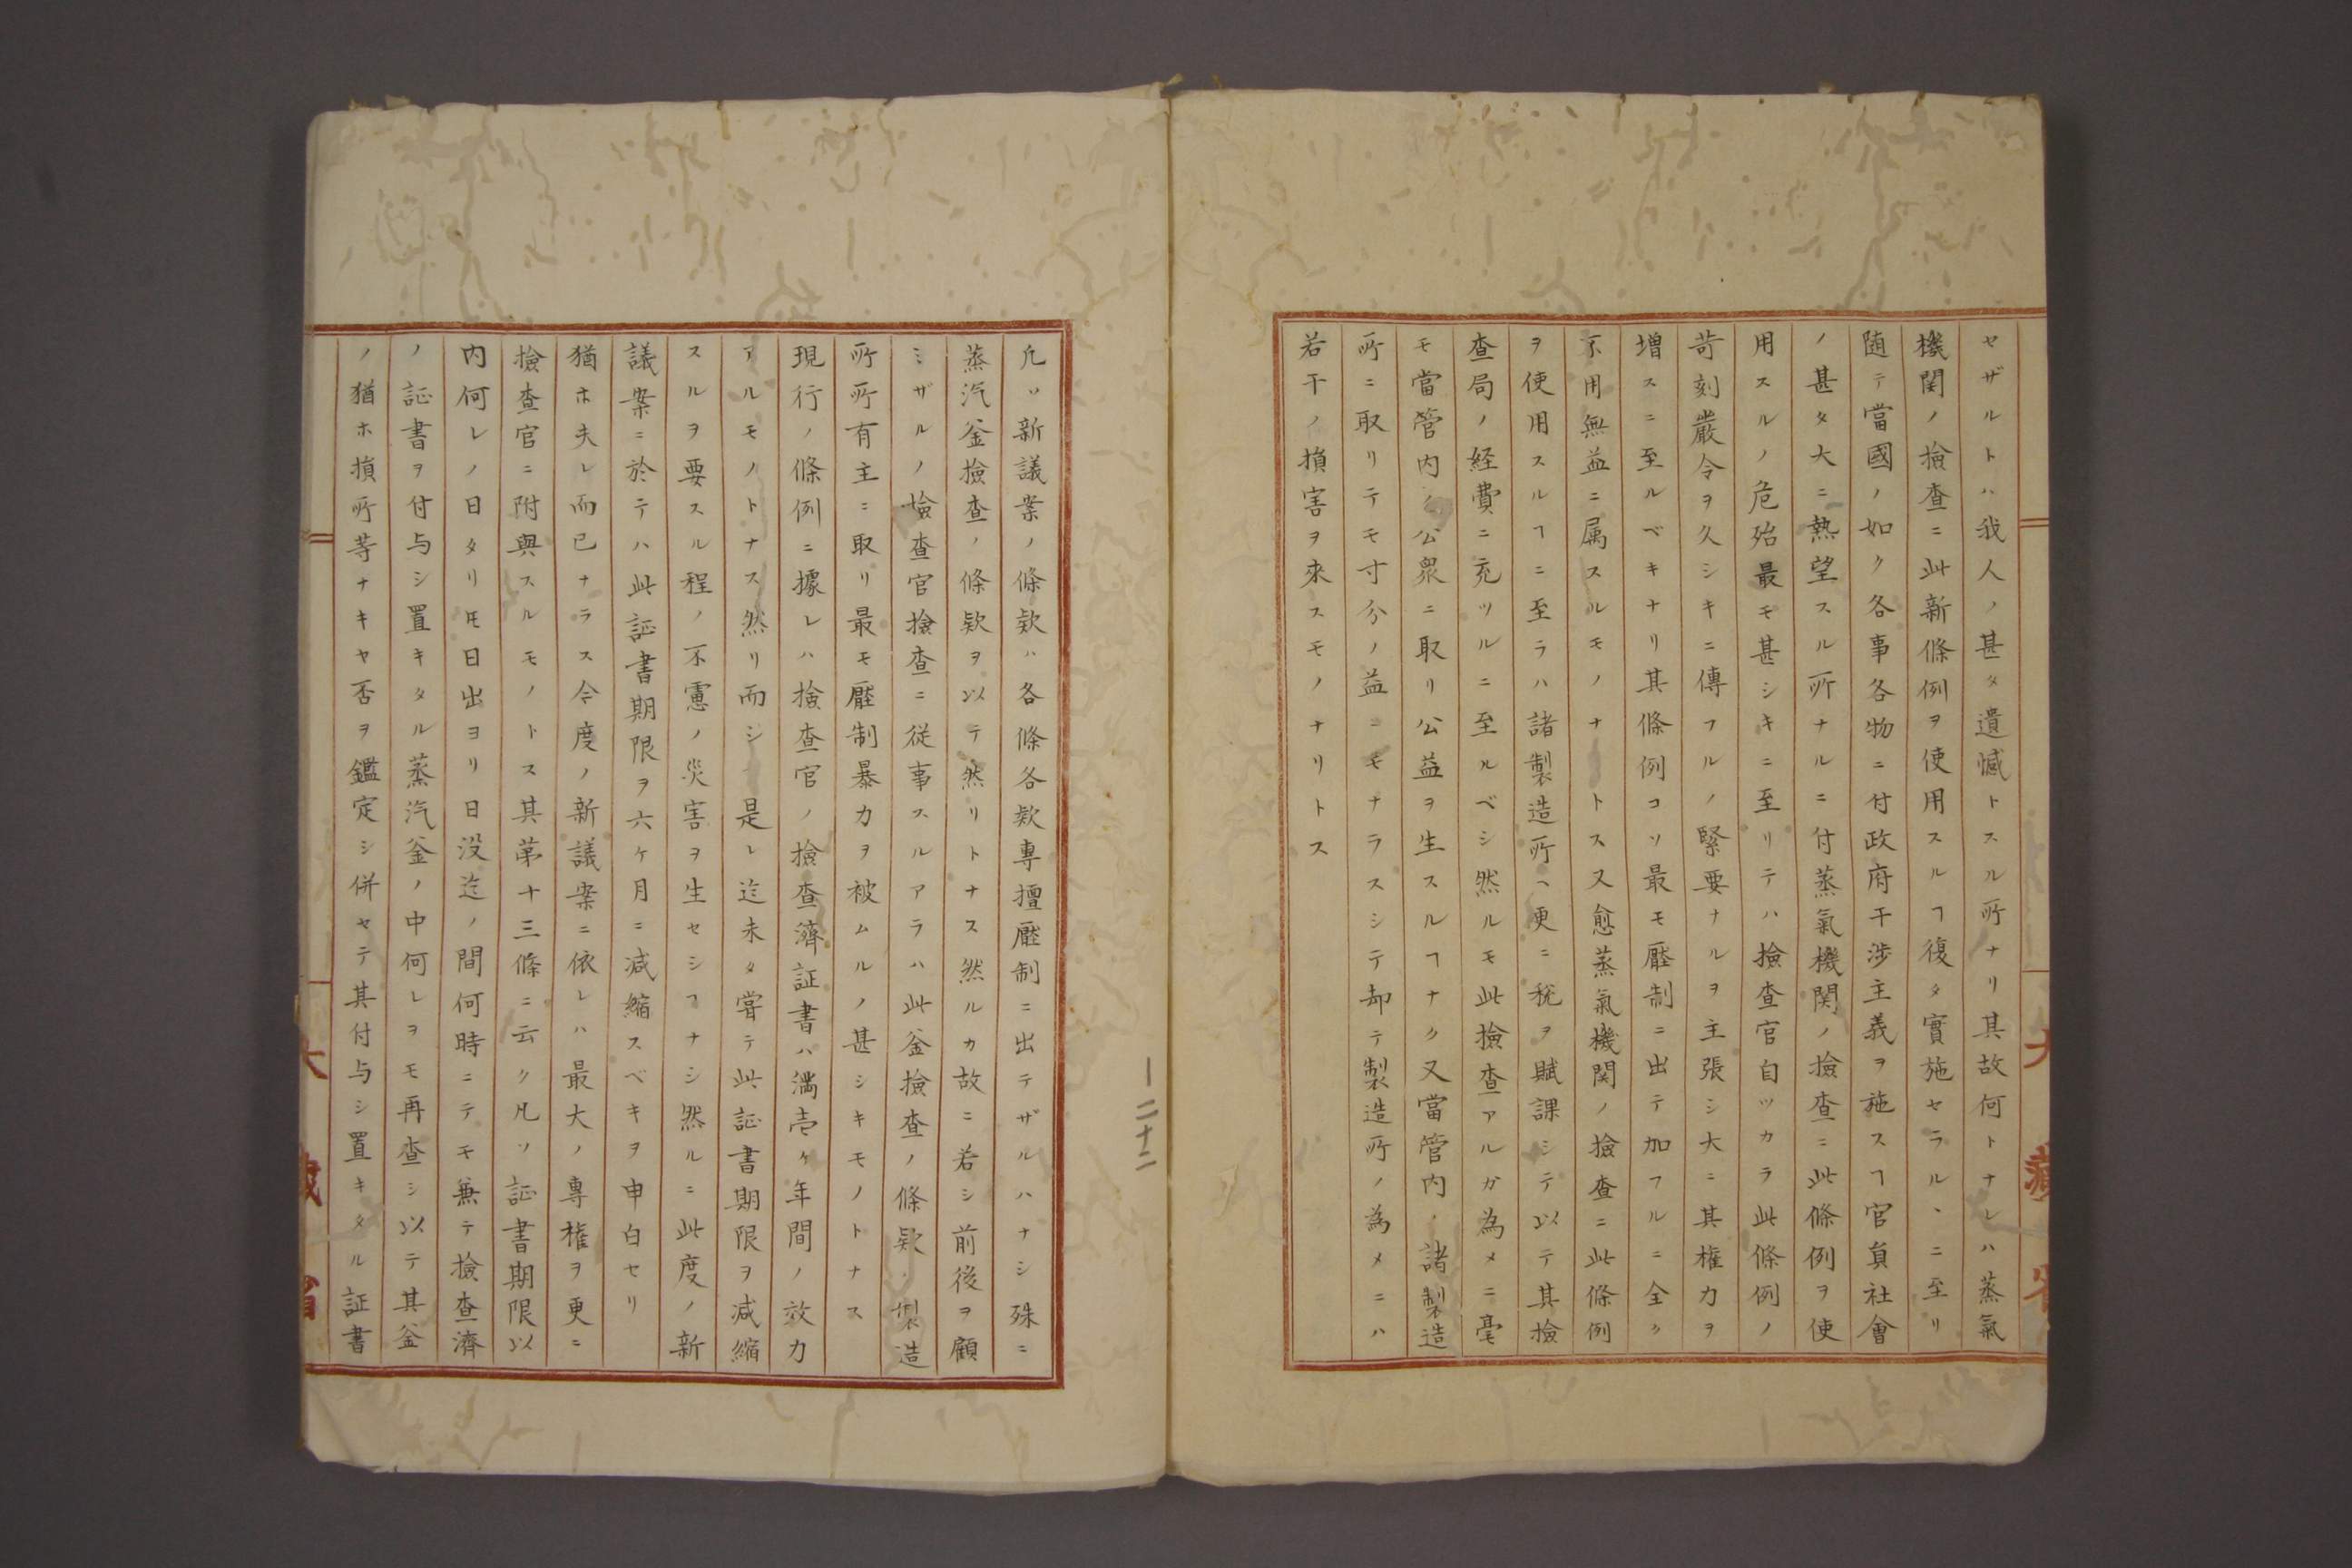 セザルトハ我人ノ甚タ遺憾トスル所ナリ其故何トナレハ蒸氣
機関ノ撿查ニ此新條例ヲ使用スルヿ復タ實施セラルヽニ至リ
随テ當國ノ如ク各事各物ニ付政府干渉主義ヲ施スヿ官員社會
ノ甚タ大ニ熱望スル所ナルニ付蒸氣機関ノ撿查ニ此條例ヲ使
用スルノ危殆最モ甚シキニ至リテハ撿查官自ツカラ此條例ノ
苛刻嚴令ヲ久シキニ傳フルノ緊要ナルヲ主張シ大ニ其権力ヲ
増スニ至ルベキナリ其條例コソ最モ壓制ニ出テ加フルニ全ク
不用無益ニ属スルモノナリトス又愈蒸氣機関ノ撿查ニ此條例
ヲ使用スルヿニ至ラハ諸製造所ヘ更ニ税ヲ賦課シテ以テ其撿
查局ノ経費ニ充ツルニ至ルベシ然ルモ此撿查アルガ為メニ毫
モ當管内ノ公衆ニ取リ公益ヲ生スルヿナク又當管内ノ諸製造
所ニ取リテモ寸分ノ益ニモナラスシテ却テ製造所ノ為メニハ
若干ノ損害ヲ來スモノナリトス
凡ソ新議案ノ條欵ハ各條各欵專擅壓制ニ出テザルハナシ殊ニ
蒸汽釜撿查ノ條欵ヲ以テ然リトナス然ルカ故ニ若シ前後ヲ顧
ミザルノ撿查官撿查ニ従事スルアラハ此釜撿查ノ條欵ノ製造
所所有主ニ取リ最モ壓制暴力ヲ被ムルノ甚シキモノトナス
現行ノ條例ニ據レハ撿查官ノ撿查濟証書ハ満壱ヶ年間ノ效力
アルモノトナス然リ而シテ是レ迄未タ甞テ此証書期限ヲ減縮
スルヲ要スル程ノ不慮ノ災害ヲ生セシヿナシ然ルニ此度ノ新
議案ニ於テハ此証書期限ヲ六ヶ月ニ減縮スベキヲ申白セリ
猶ホ夫レ而已ナラス今度ノ新議案ニ依レハ最大ノ專権ヲ更ニ
撿查官ニ附與スルモノトス其第十三條ニ云ク凡ソ証書期限以
内何レノ日タリトモ日出ヨリ日没迄ノ間何時ニテモ兼テ撿查濟
ノ証書ヲ付与シ置キタル蒸汽釜ノ中何レヲモ再查シ以テ其釜
ノ猶ホ損所等ナキヤ否ヲ鑑定シ併セテ其付与シ置キタル証書
二十二
大藏省